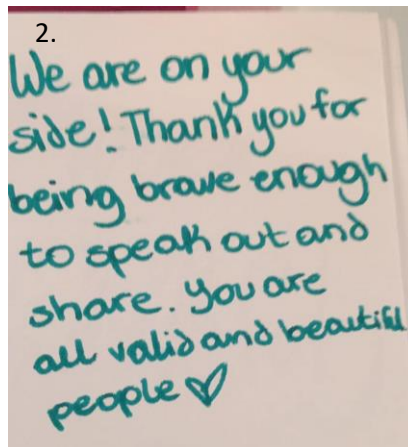 2.
We are on your
side! Thank you for
being brave enough
to speak out and
share. You are
all valid and beautiful
people ♡